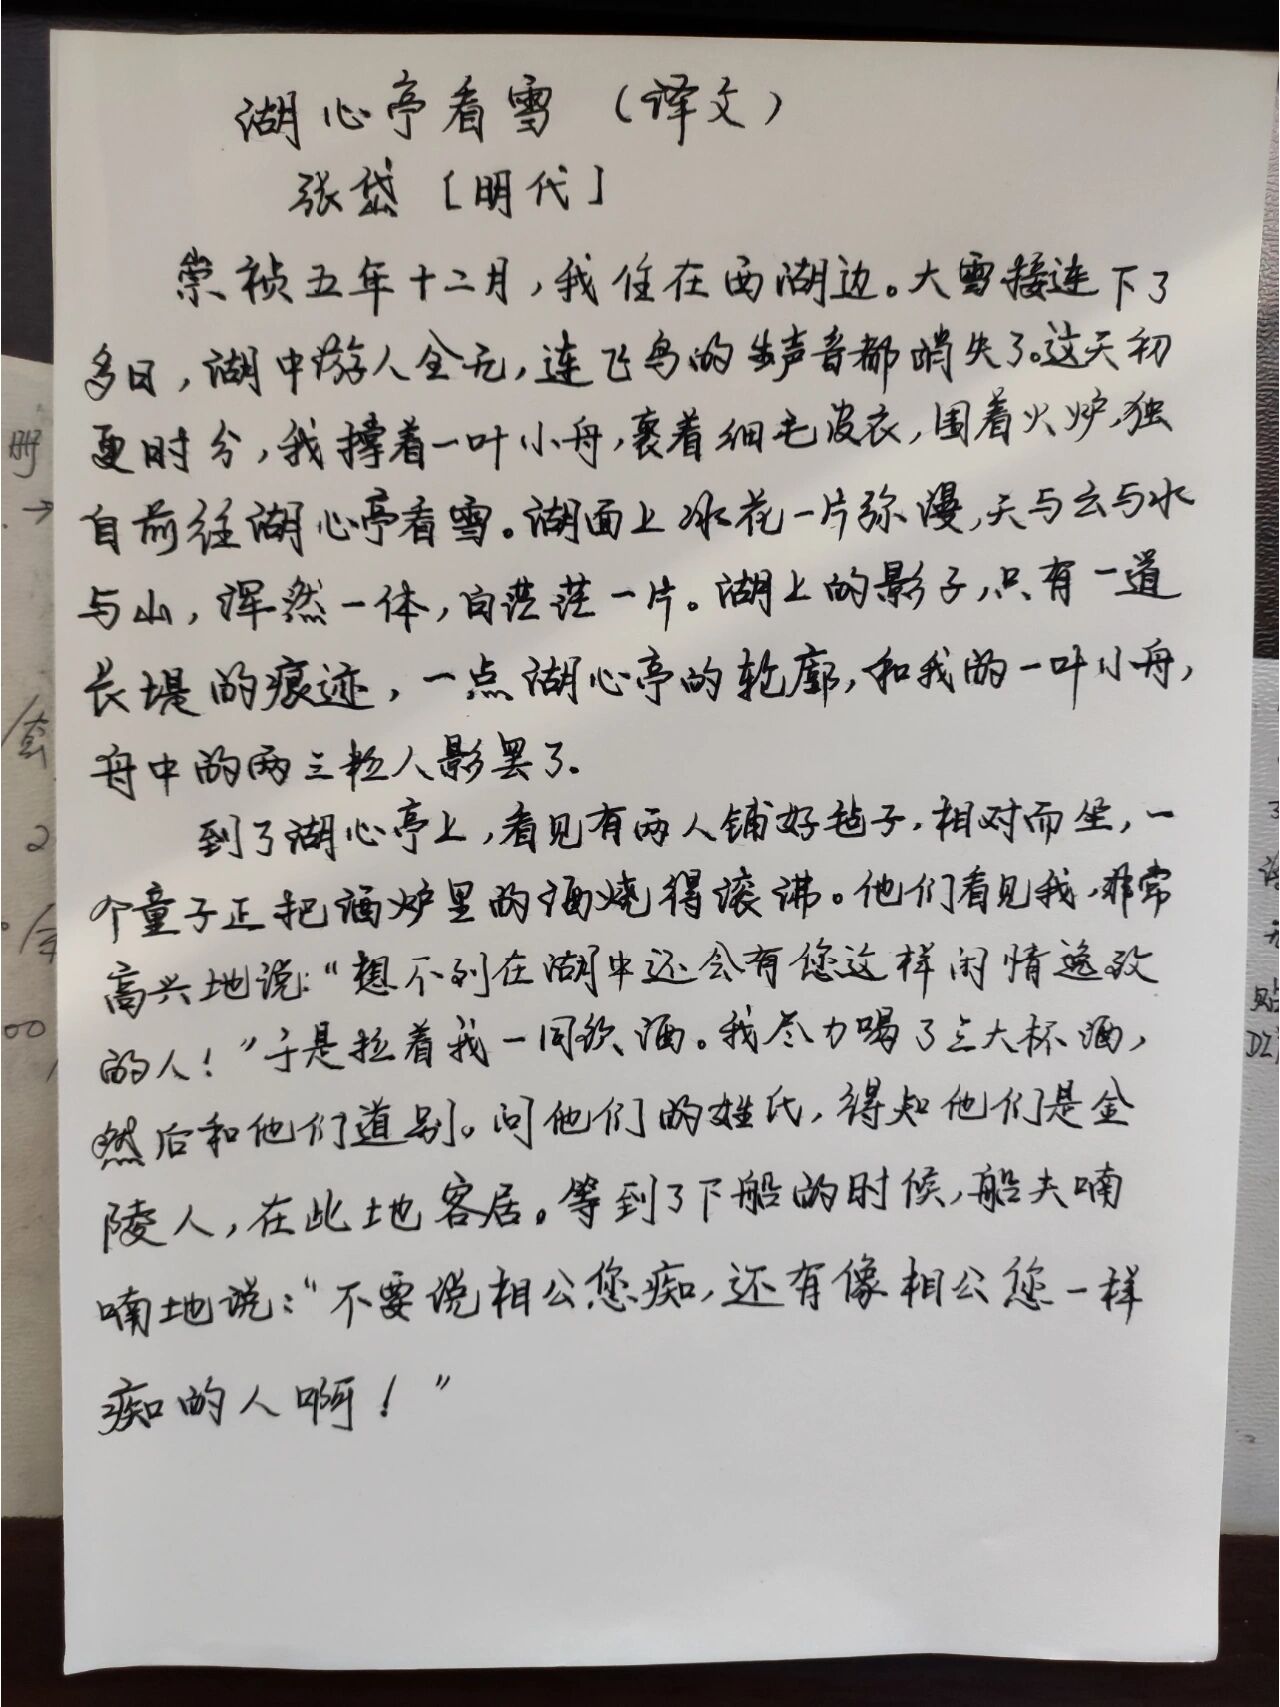 湖心亭看雪（译文）
张岱［明代］
崇祯五年十二月，我住在西湖边。大雪接连下了
多日，湖中游人全无，连飞鸟的生声音都消失了。这天初
更时分，我撑着一叶小舟，裹着细毛皮衣，围着火炉，独
自前往湖心亭看雪。湖面上冰花一片弥漫，天与云与水
与山，浑然一体，白茫茫一片。湖上的影子，只有一道
长堤的痕迹，一点湖心亭的轮廓，和我的一叶小舟，
舟中的两三粒人影罢了。
到了湖心亭上，看见有两人铺好毡子，相对而坐，一
个童子正把酒炉里的酒烧得滚沸。他们看见我，非常
高兴地说：“想不到在湖中还会有您这样闲情逸致
的人！”于是拉着我一同饮酒。我尽力喝了三大杯酒，
然后和他们道别。问他们的姓氏，得知他们是金
陵人，在此地客居。等到了下船的时候，船夫喃
喃地说：“不要说相公您痴，还有像相公您一样
痴的人啊！”
册
→
套
2
00
贴